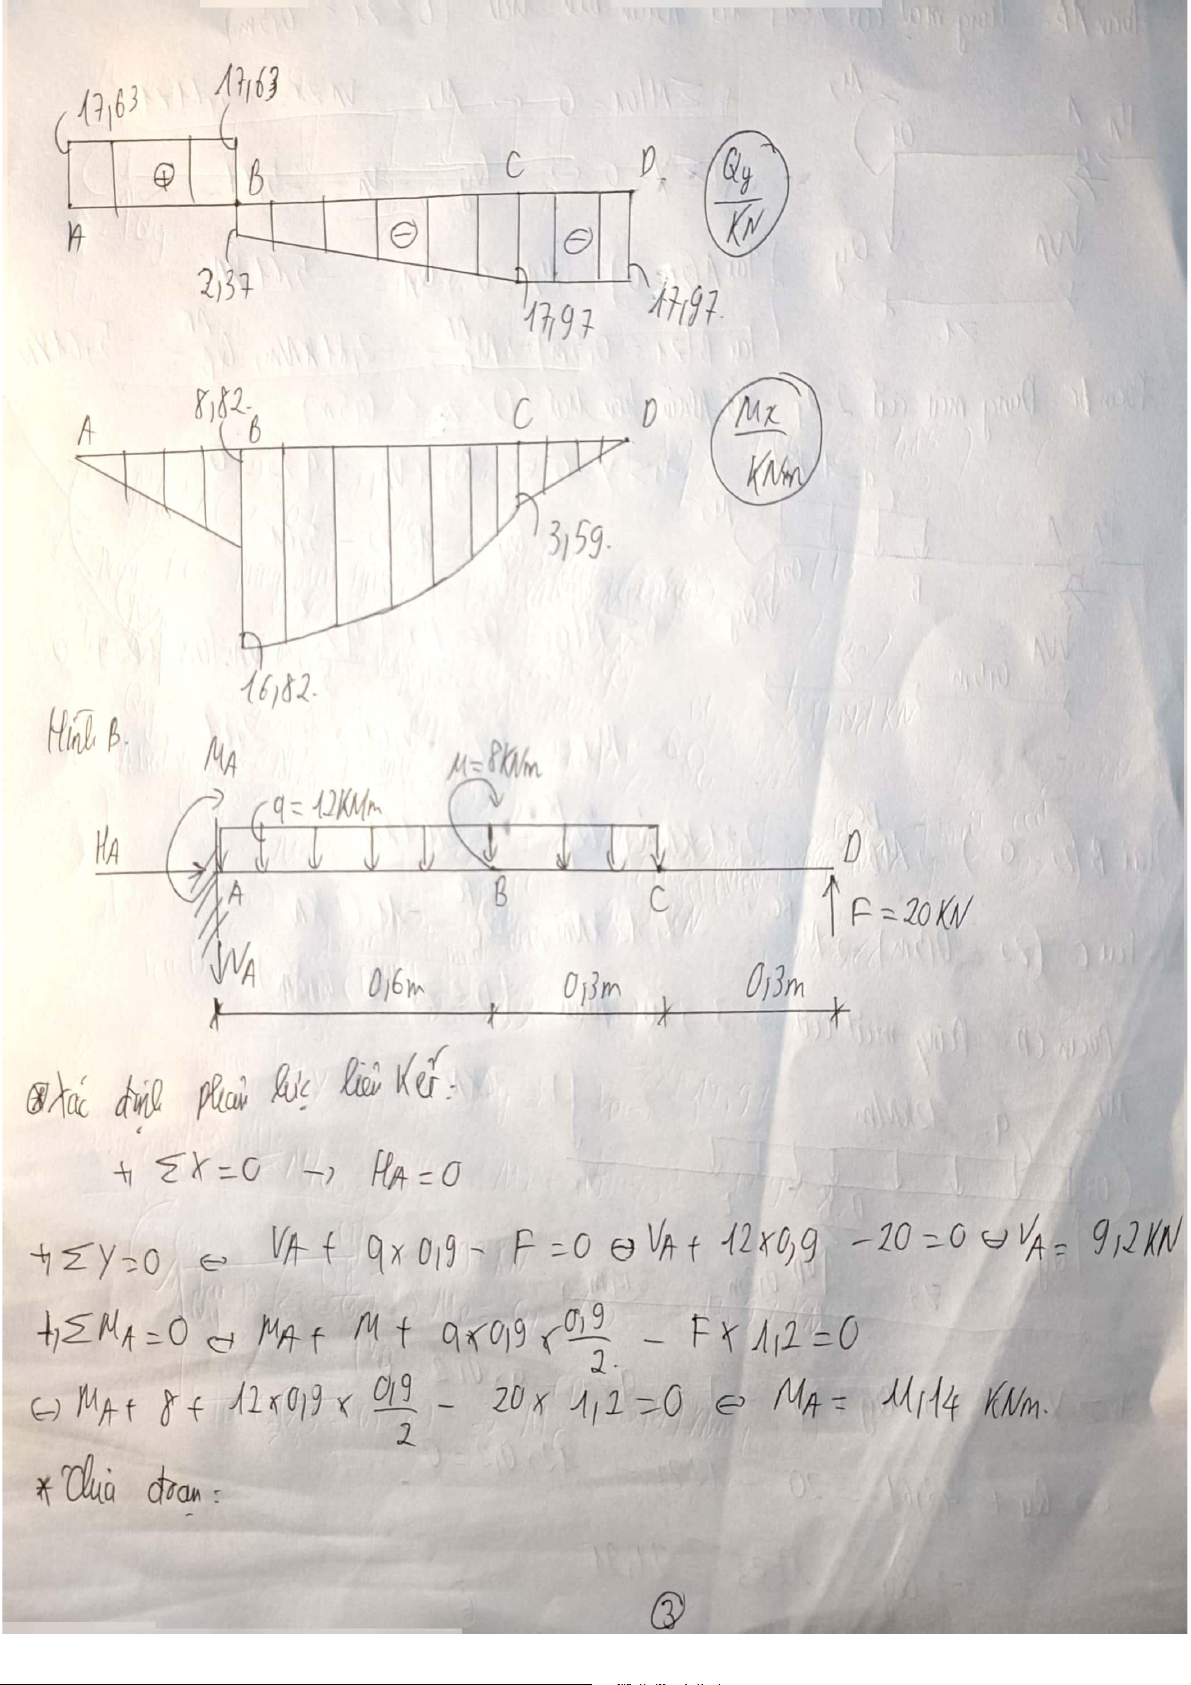 17,63 17,63
⊕ B C D Qy/KN
A ⊖ ⊖
2,37 17,97 17,97.
8,82.
A B C D Mx/KNm
3,59.
16,82.
Hình B.
MA M=8KNm
q=12KNm
HA D
A B C F=20KN
VA
0,6m 0,3m 0,3m
⊛ Xác định phản lực liên kết:
+, ΣX=0 → HA=0
+, ΣY=0 ⇔ VA + q×0,9 - F=0 ⇔ VA + 12×0,9 -20=0 ⇔ VA= 9,2KN
+, ΣMA=0 ⇔ MA + M + q×0,9×0,9/2. - F×1,2=0
⇔ MA+ 8+ 12×0,9× 0,9/2 - 20× 1,2=0 ⇔ MA= 11,14 KNm.
* Chia đoạn:
③